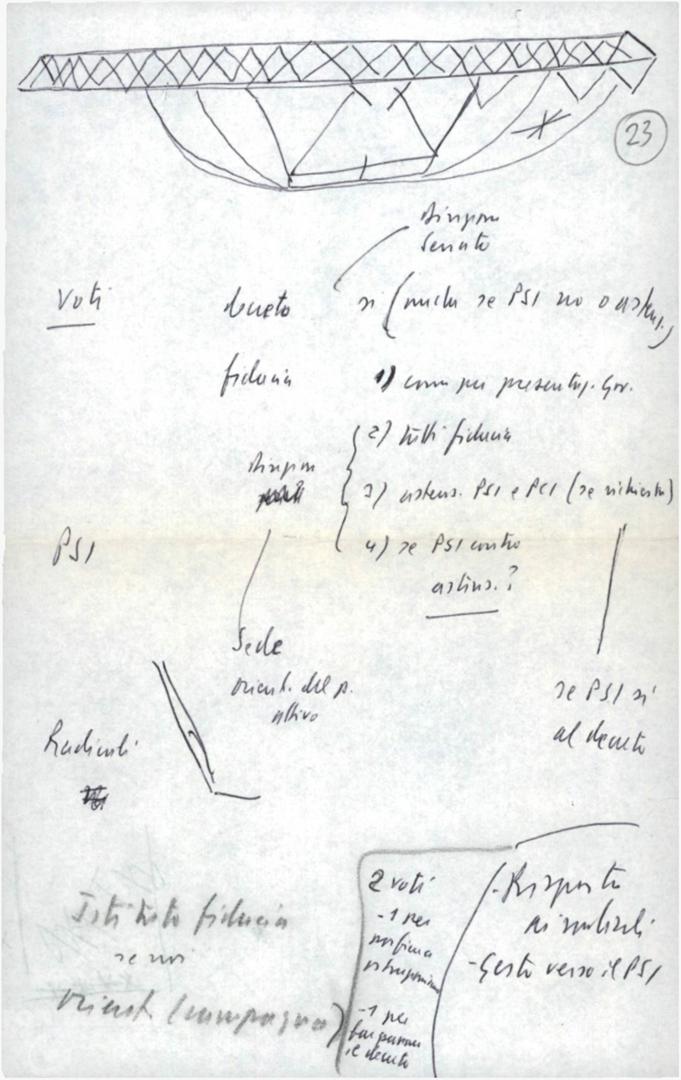 23
Senato
Voti decreto si (anche se PSI no o asten.)
fiducia 1) come per presentaz. Gov.
2) tutti fiducia
3) astens. PSI e PCI (se richiesta)
PSI 4) se PSI contro
astens.?
Sede
orient. del p.
se PSI si
al decreto
Radicali
2 voti
- 1 per
- 1 per
far passare
il decreto
- Risposta
ai radicali
- Gesto verso il PSI
Istituto fiducia
se noi
Orient. (campagna)